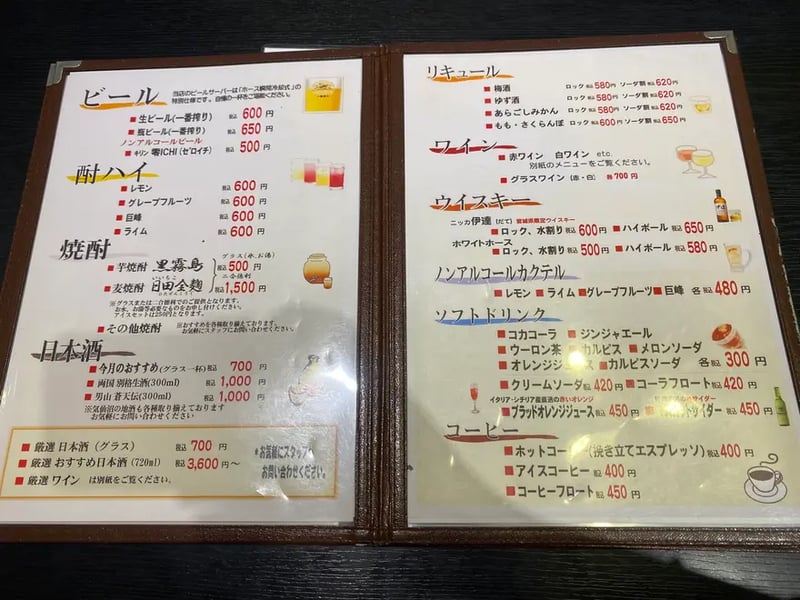 ビール
当店のビールサーバーは「ホース瞬間冷却式」の
特別仕様です。自慢の一杯をご堪能ください。
■生ビール(一番搾り) 税込 600 円
■瓶ビール(一番搾り) 税込 650 円
ノンアルコールビール
■キリン 零ICHI(ゼロイチ) 税込 500 円
酎ハイ
■レモン 税込 600 円
■グレープフルーツ 税込 600 円
■巨峰 税込 600 円
■ライム 税込 600 円
焼酎
グラス(水、お湯)
■芋焼酎 黒霧島 税込 500 円
二合徳利
■麦焼酎 日田全麹 税込 1,500 円
※グラスまたは二合徳利でのご提供となります。
お水、お湯等必要なものをお申し付けください。
アイスセットは250円となります。
■その他焼酎 ※おすすめを各種取り揃えております。
お気軽にスタッフにお問い合わせください。
日本酒
■今月のおすすめ(グラス一杯) 税込 700 円
■両国 別格生酒(300ml) 税込 1,000 円
■男山 蒼天伝(300ml) 税込 1,000 円
※気仙沼の地酒も各種取り揃えております
お気軽にお問い合わせください
■厳選 日本酒(グラス) 税込 700 円
■厳選 おすすめ日本酒(720ml) 税込 3,600 円〜
■厳選 ワイン は別紙をご覧ください。
*お気軽にスタッフへ
お問い合わせください。
リキュール
■梅酒 ロック 税込 580円 ソーダ割 税込 620円
■ゆず酒 ロック 税込 580円 ソーダ割 税込 620円
■あらごしみかん ロック 税込 580円 ソーダ割 税込 620円
■もも・さくらんぼ ロック 税込 600円 ソーダ割 税込 650円
ワイン
■赤ワイン 白ワイン etc.
別紙のメニューをご覧ください。
■グラスワイン(赤・白) 各 700 円
ウイスキー
ニッカ 伊達(だて) 宮城県限定ウイスキー
■ロック、水割り 税込 600 円 ■ハイボール 税込 650 円
ホワイトホース
■ロック、水割り 税込 500 円 ■ハイボール 税込 580 円
ノンアルコールカクテル
■レモン ■ライム ■グレープフルーツ ■巨峰 各 税込 480 円
ソフトドリンク
■コカコーラ ■ジンジャエール
■ウーロン茶 ■カルピス ■メロンソーダ
■オレンジジュース ■カルピスソーダ 各 税込 300 円
■クリームソーダ 税込 420 円 ■コーラフロート 税込 420 円
イタリア・シチリア産直送の赤いオレンジ
■ブラッドオレンジジュース 税込 450 円 サイダー 税込 450 円
コーヒー
■ホットコーヒー(挽き立てエスプレッソ) 税込 400 円
■アイスコーヒー 税込 400 円
■コーヒーフロート 税込 450 円